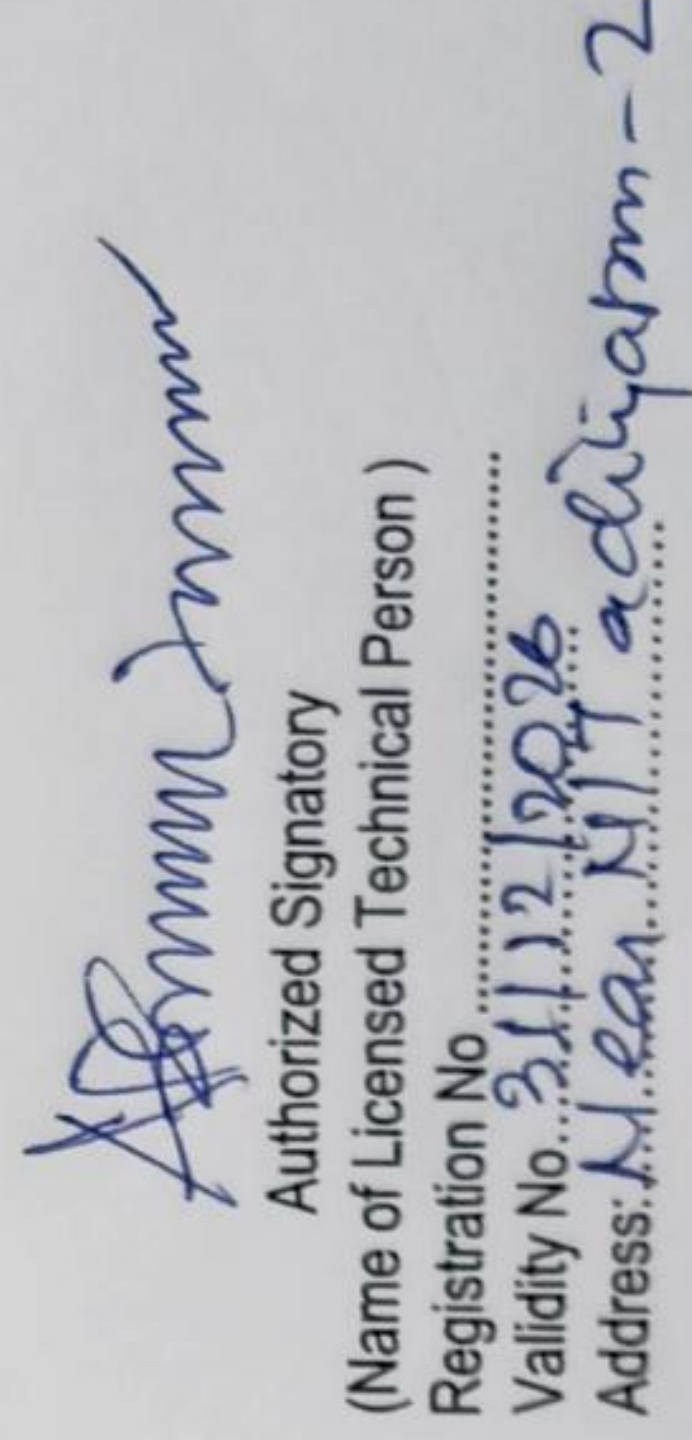 Authorized Signatory
(Name of Licensed Technical Person )
Registration No ..............................
Validity No...31/12/2026
Address:. Near NIT adityapur-2